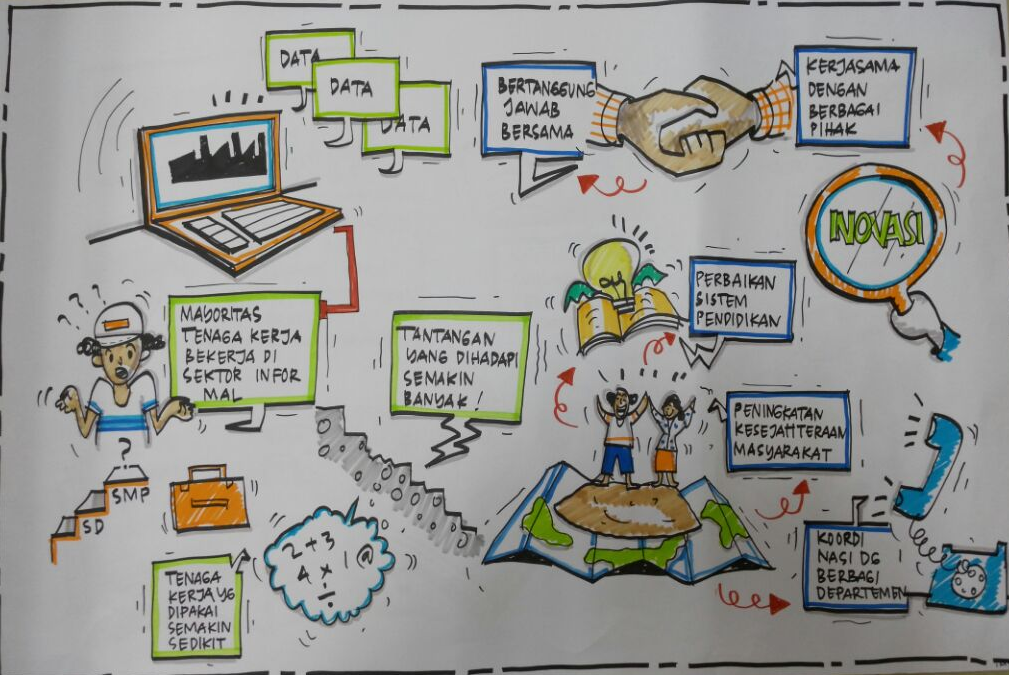 DATA
DATA
DATA
BERTANGGUNG
JAWAB
BERSAMA
KERJASAMA
DENGAN
BERBAGAI
PIHAK
INOVASI
PERBAIKAN
SISTEM
PENDIDIKAN
? ? ?
MAYORITAS
TENAGA KERJA
BEKERJA DI
SEKTOR INFOR
MAL
TANTANGAN
YANG DIHADAPI
SEMAKIN
BANYAK!
PENINGKATAN
KESEJAHTERAAN
MASYARAKAT
?
SMP
SD
2+3
4 × | @
÷
TENAGA
KERJA YG
DIPAKAI
SEMAKIN
SEDIKIT
KOORDI
NASI DG
BERBAGI
DEPARTEMEN